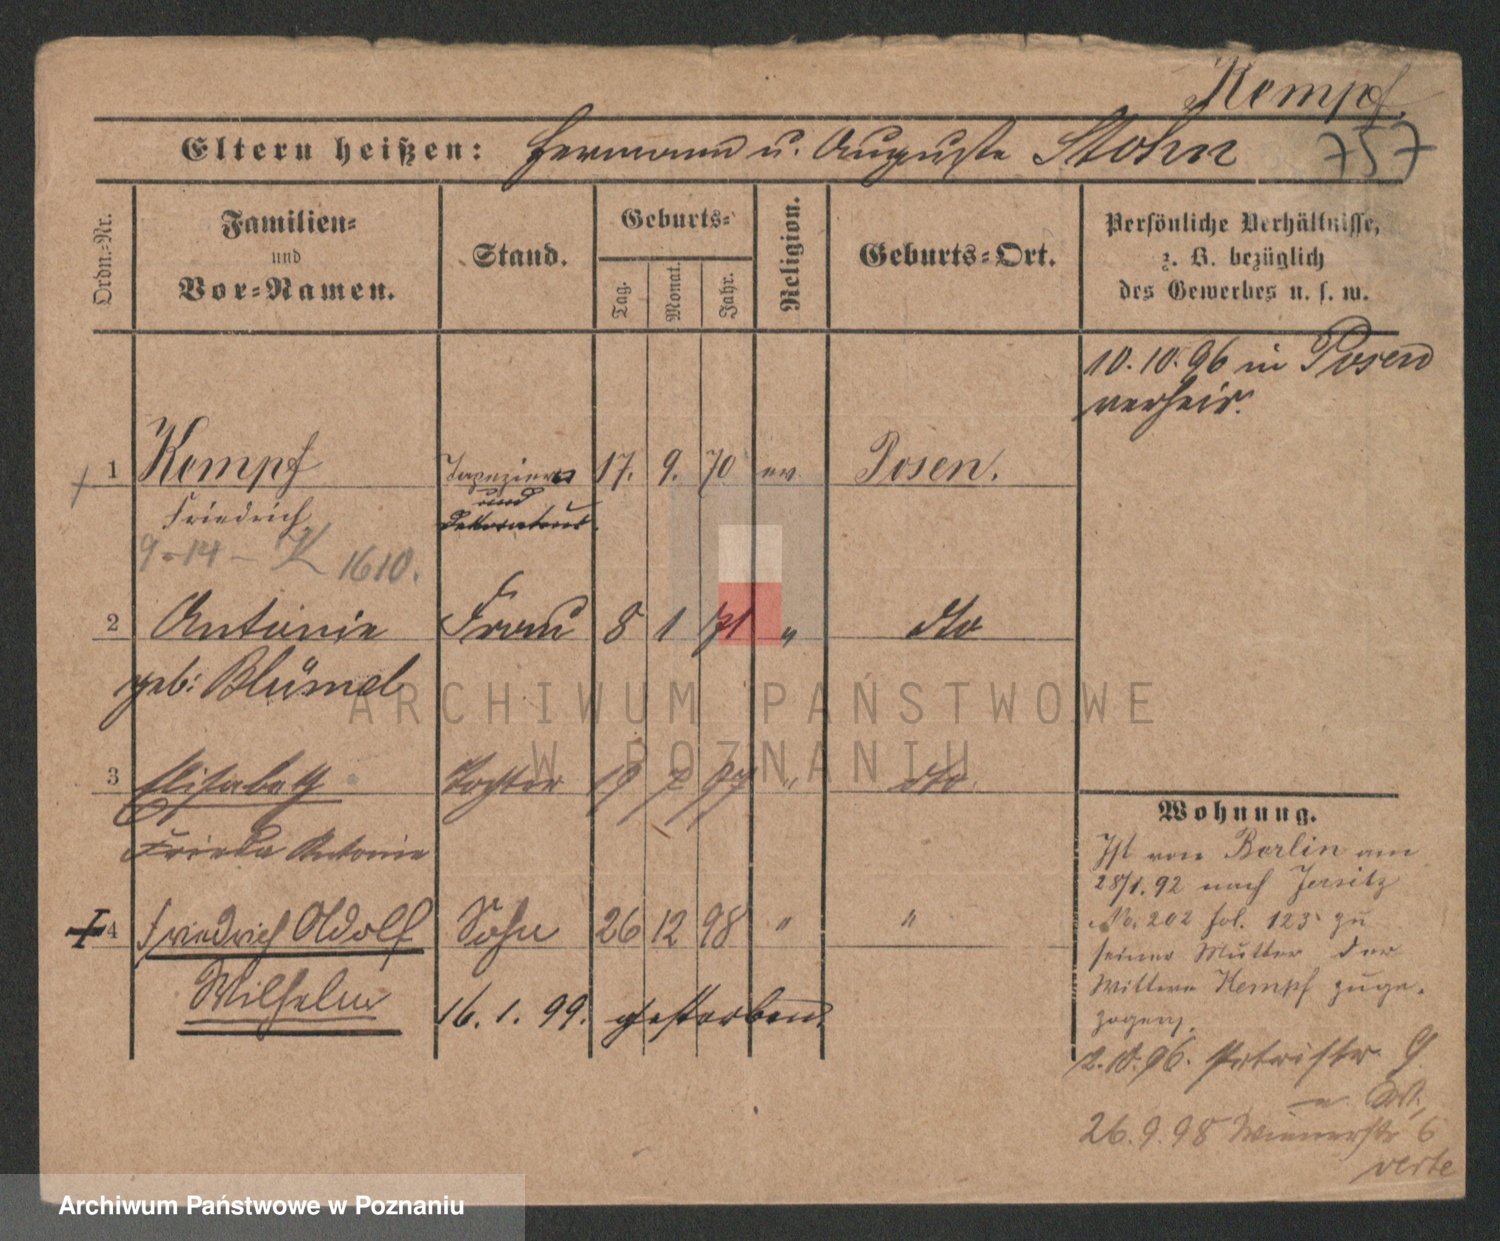 Kempf.
757
Eltern heißen: Hermann u. Auguste Stohn
Ordn.-Nr.
Familien-
und
Vor-Namen.
Stand.
Geburts-
Tag.
Monat.
Jahr.
Religion.
Geburts-Ort.
Persönliche Verhältnisse,
z. B. bezüglich
des Gewerbes u. s. w.
10.10.96 in Posen
verheir.
1 Kempf Tapezierer 17. 9. 70 ev. Posen.
Friedrich und
Dekorateur
9-14- K 1610.
2 Antonie Frau 8 1 71 " dto
geb: Blümel
3 Elisabeth Tochter 19 7 97 " dto.
Frieda Antonie
4 Friedrich Adolf Sohn 26 12 98 " "
Wilhelm
16. 1. 99. gestorben.
Wohnung.
Ist von Berlin am
28/1. 92 nach Jersitz
No. 202 fol. 123 zu
seiner Mutter der
Wittwe Kempf zuge-
zogen.
2.10.96. Petristr. 9.
26.9.98 Wienerstr 6
verte
ARCHIWUM PAŃSTWOWE
W POZNANIU
Archiwum Państwowe w Poznaniu